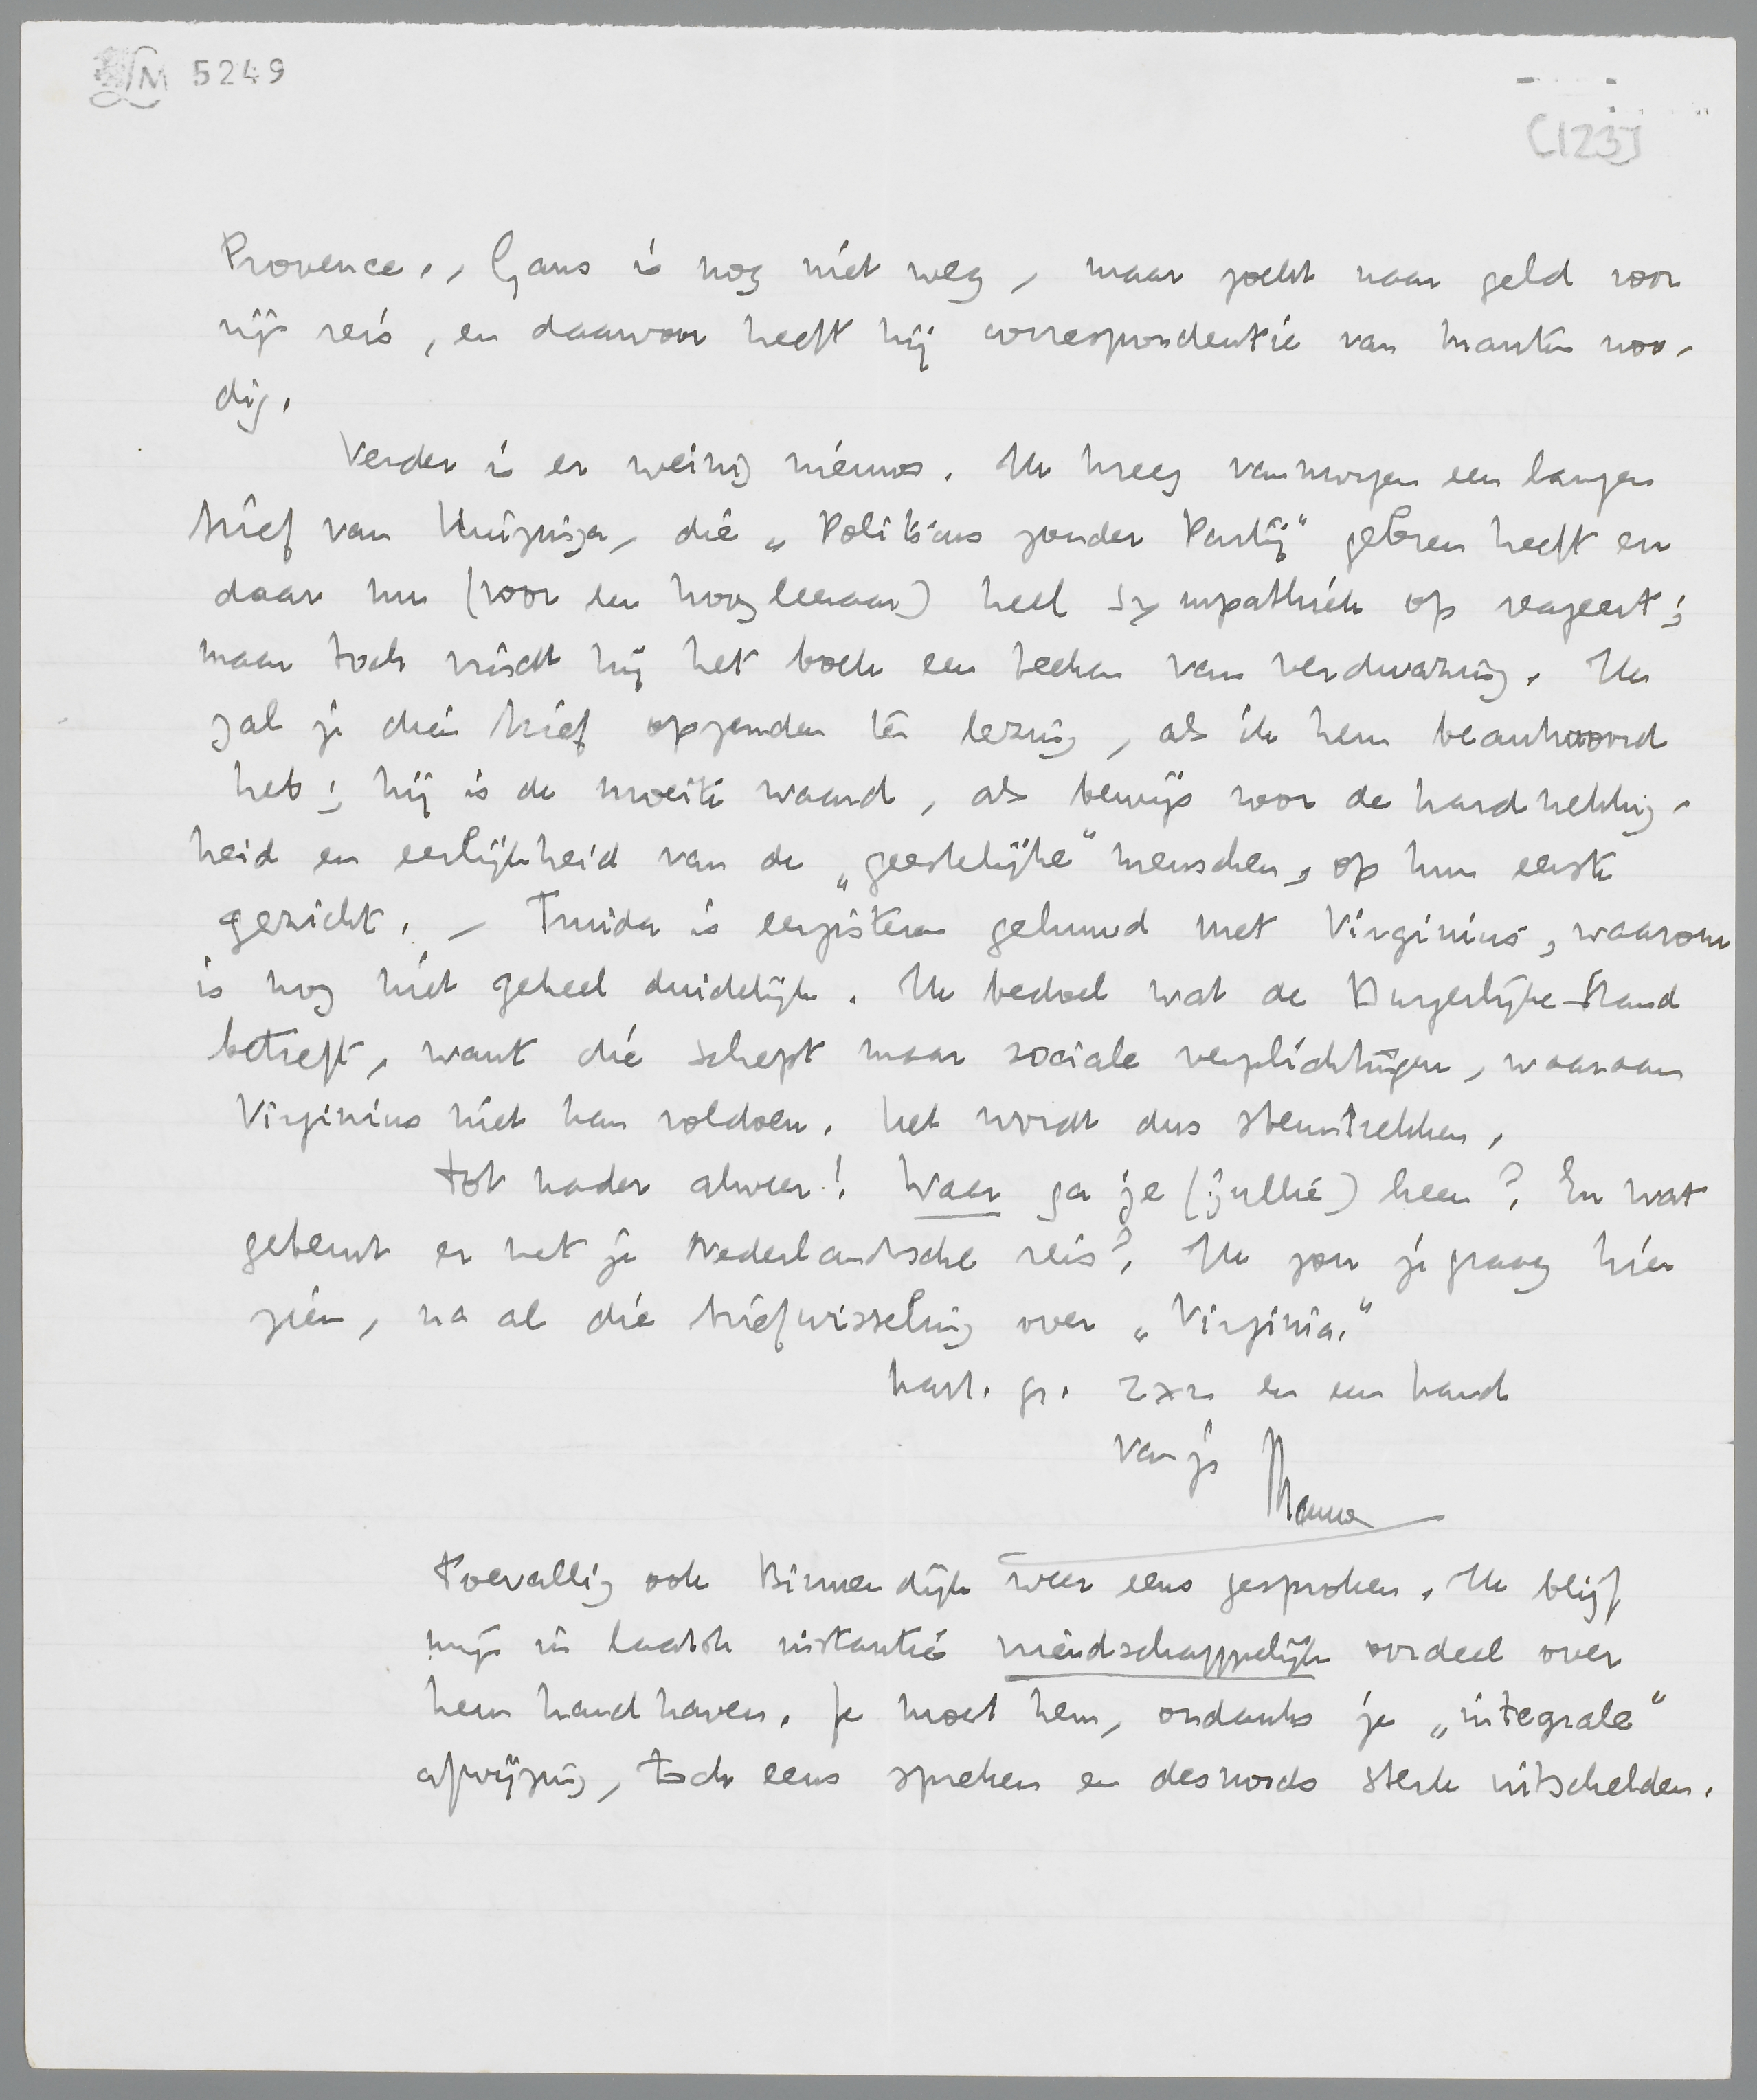 LM 5249
[123]
Provence. - Gans is nog niet weg, maar zoekt naar geld voor
zijn reis, en daarvoor heeft hij correspondentie van kranten noo-
dig.
Verder is er weinig nieuws. Ik kreeg vanmorgen een langen
brief van Huizinga, die „Politicus zonder Partij" gelezen heeft en
daar nu (voor een hoogleeraar) heel sympathiek op reageert;
maar toch vindt hij het boek een teeken van verdwazing. Ik
zal je dien brief opzenden ter lezing, als ik hem beantwoord
heb; hij is de moeite waard, als bewijs voor de hardnekkig-
heid en eerlijkheid van de „geestelijke" menschen, op hun eerste
gezicht. - Truida is eergisteren gehuwd met Virginius, waarom
is nog niet geheel duidelijk. Ik bedoel wat de Burgerlijke Stand
betreft, want die schept maar sociale verplichtingen, waaraan
Virginius niet kan voldoen. Het wordt dus steuntrekken.
Tot nader alweer! Waar ga je (jullie) heen? En wat
gebeurt er met je Nederlandsche reis? Ik zou je graag hier
zien, na al die briefwisseling over „Virginia."
hart. gr. 2x2 en een hand
van je Menno
Toevallig ook Binnendijk weer eens gesproken. Ik blijf
mijn in laatste instantie vriendschappelijk oordeel over
hem handhaven. Je moet hem, ondanks je „integrale"
afwijzing, toch eens spreken en desnoods sterk uitschelden.